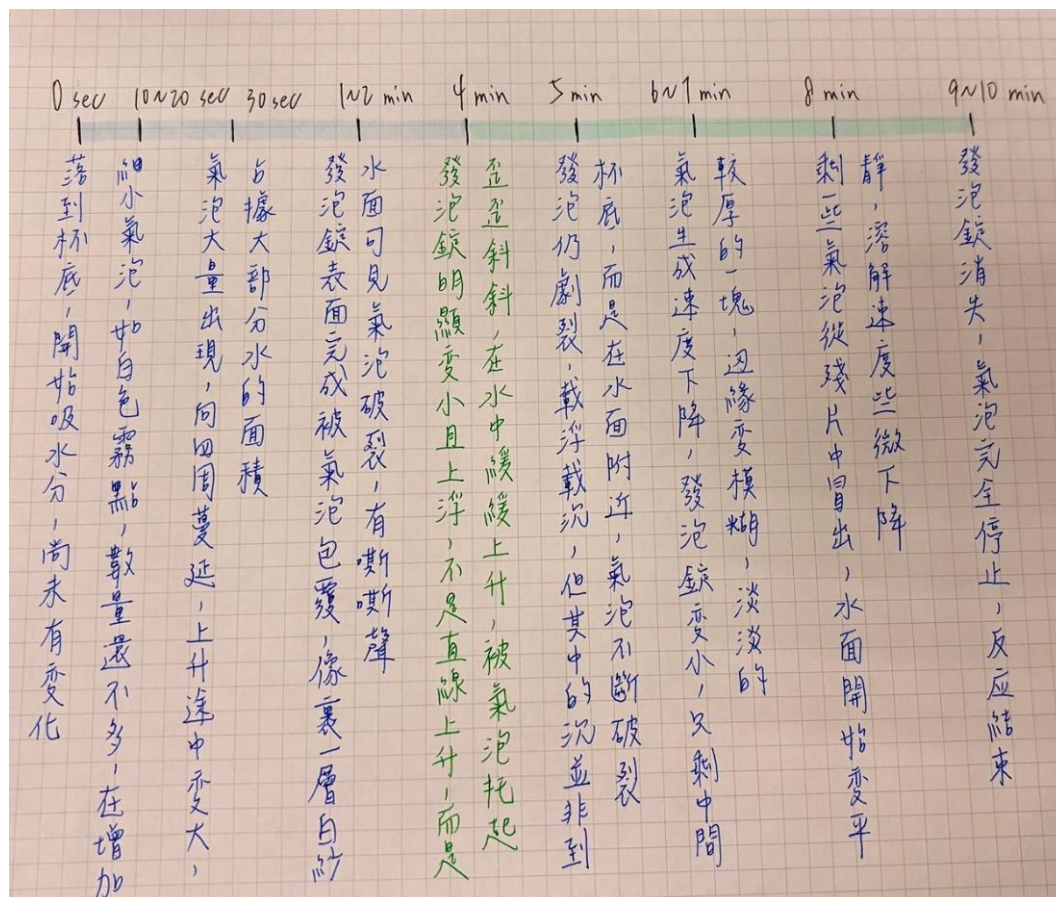 0 sec 10~20 sec 30 sec 1~2 min 4 min 5 min 6~7 min 8 min 9~10 min
落到杯底,開始吸水分,尚未有变化
細小氣泡,如白色霧點,數量還不多,在增加
氣泡大量出現,向四周蔓延,上升途中变大,
占據大部分水的面積
發泡錠表面完成被氣泡包覆,像裹一層白紗
水面可見氣泡破裂,有嘶嘶聲
發泡錠明顯变小且上浮,不是直線上升,而是
歪歪斜斜,在水中緩緩上升,被氣泡托起
發泡仍劇裂,載浮載沉,但其中的沉並非到
杯底,而是在水面附近,氣泡不斷破裂
氣泡生成速度下降,發泡錠变小,只剩中間
較厚的一塊,边緣变模糊,淡淡的
剩一些氣泡從殘片中冒出,水面開始变平
靜,溶解速度些微下降
發泡錠消失,氣泡完全停止,反应結束